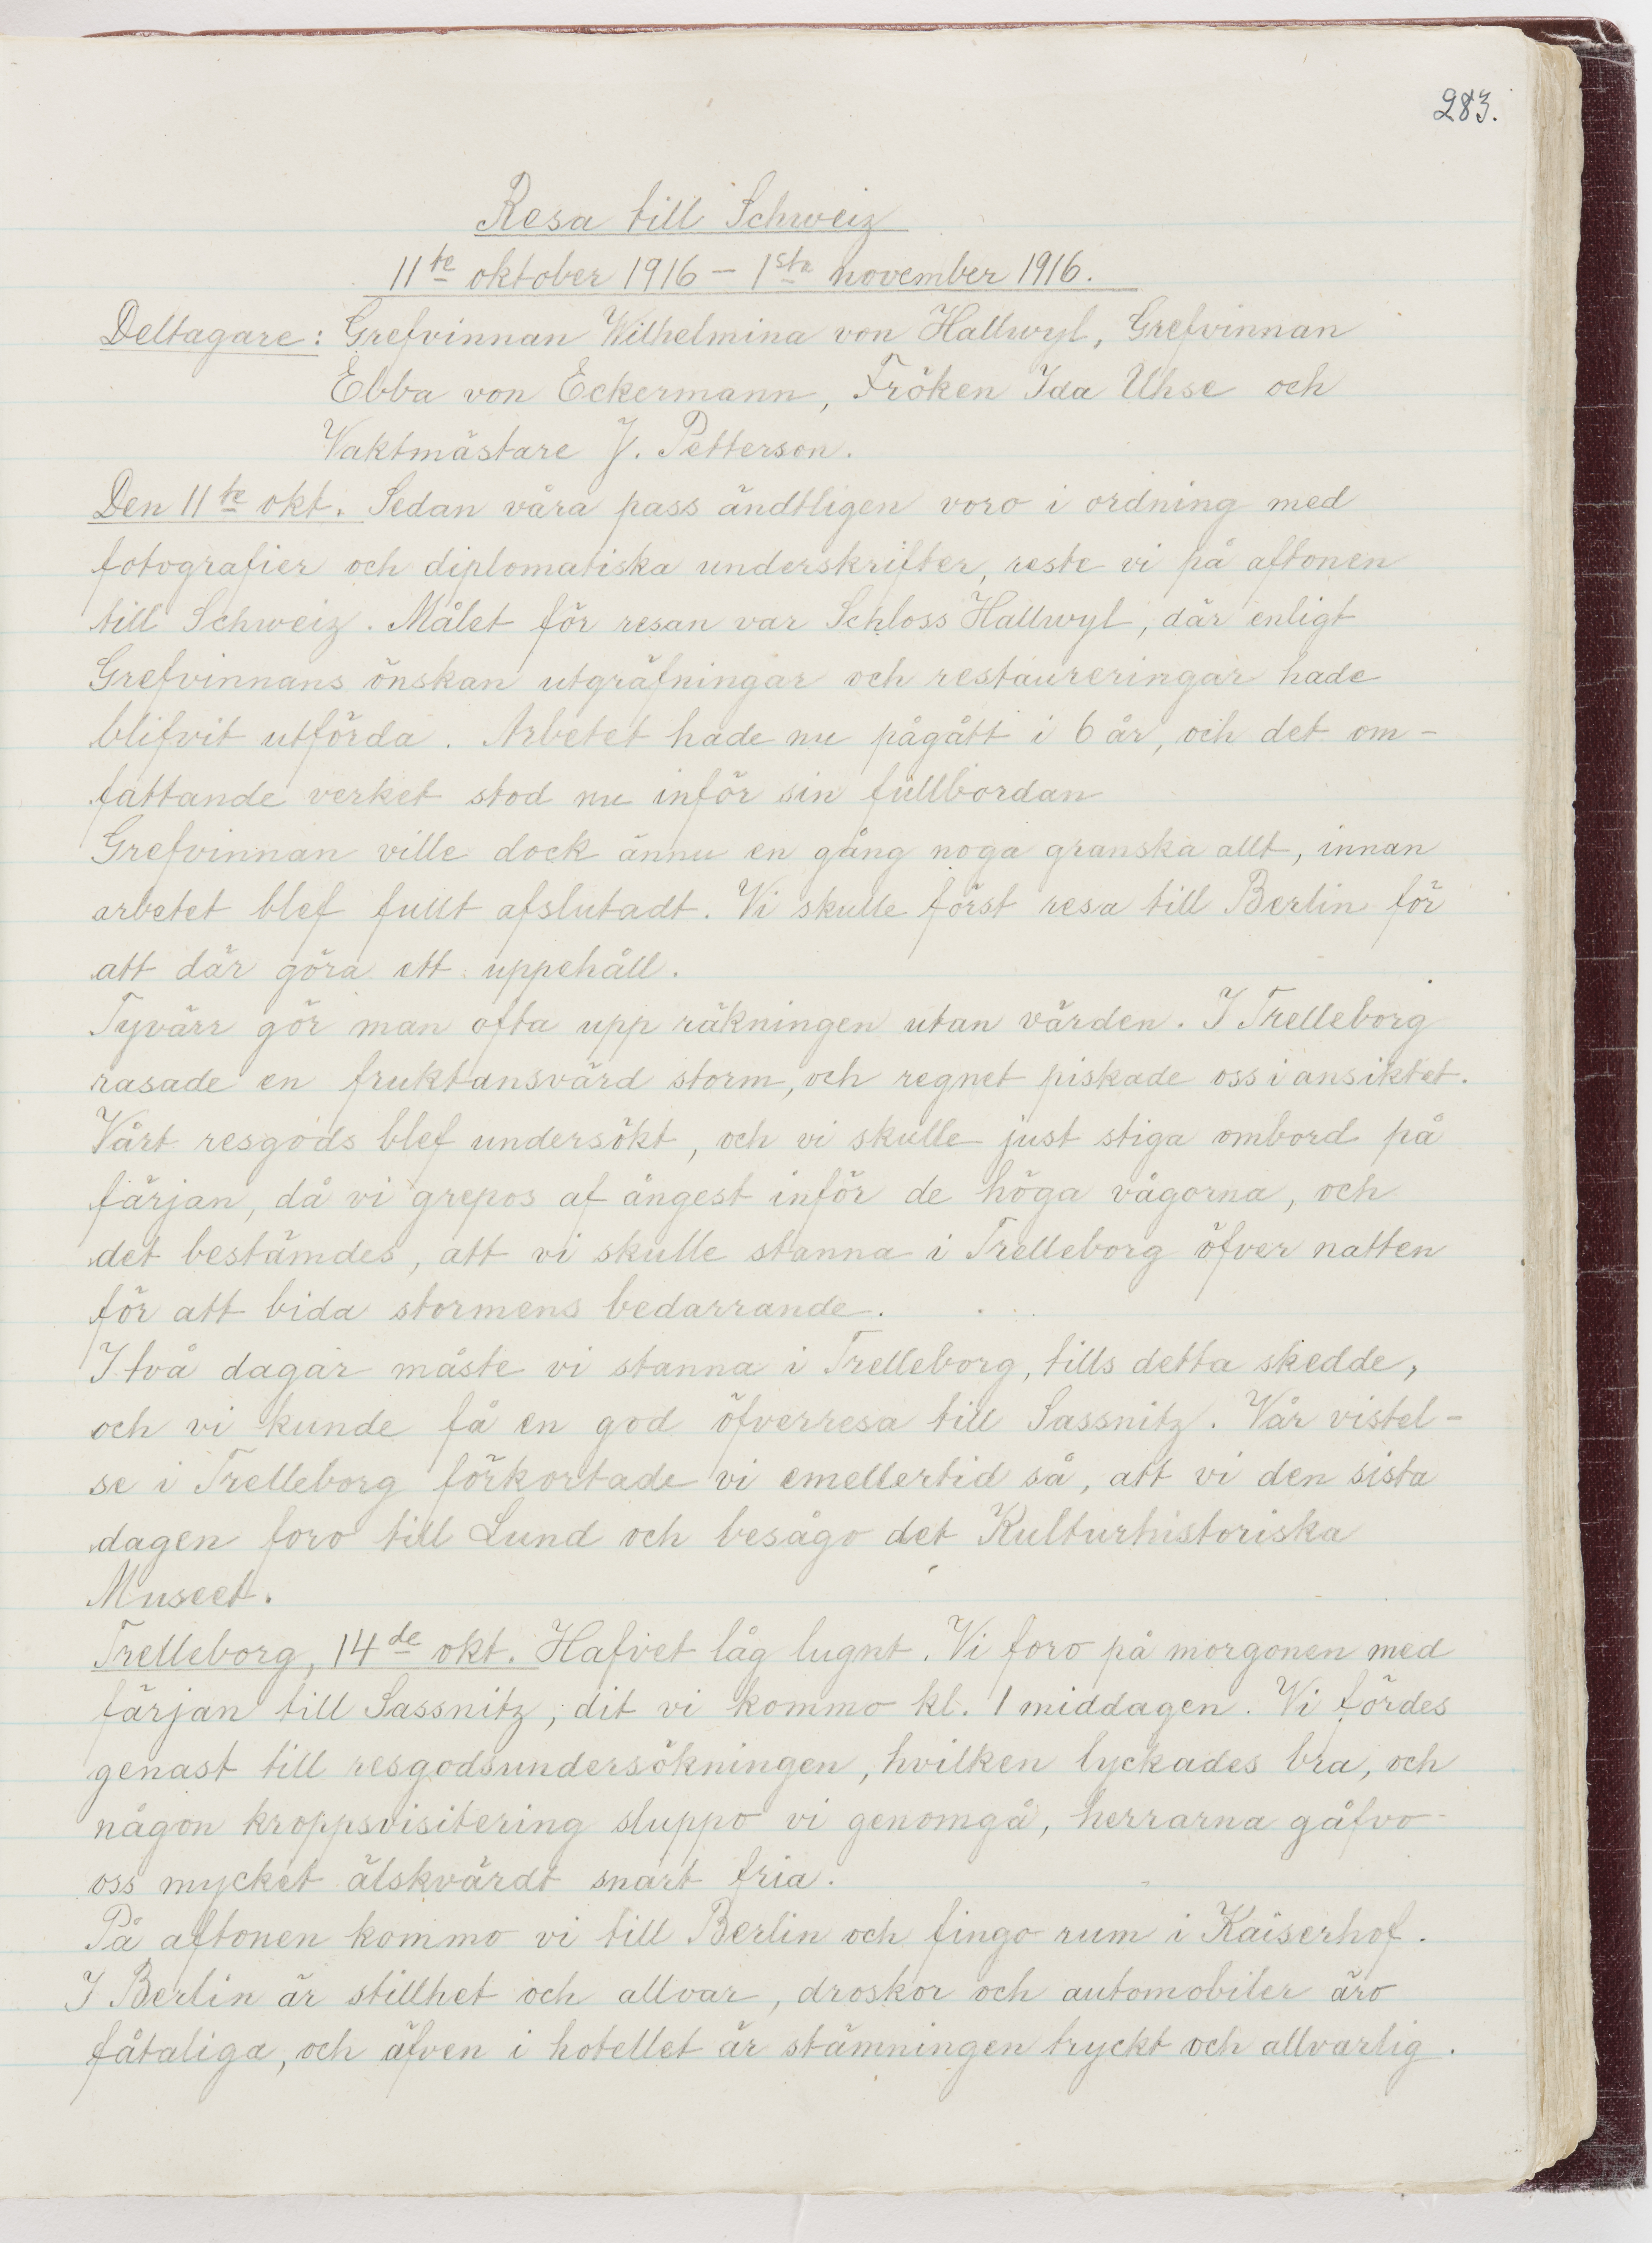 283.
Resa till Schweiz
11te oktober 1916 – 1sta november 1916.
Deltagare: Grefvinnan Wilhelmina von Hallwyl, Grefvinnan
Ebba von Eckermann, Fröken Ida Uhse och
Vaktmästare J. Petterson.
Den 11te okt. Sedan våra pass ändtligen voro i ordning med
fotografier och diplomatiska underskrifter, reste vi på aftonen
till Schweiz. Målet för resan var Schloss Hallwyl, där enligt
Grefvinnans önskan utgräfningar och restaureringar hade
blifvit utförda. Arbetet hade nu pågått i 6 år, och det om-
fattande verket stod nu inför sin fullbordan
Grefvinnan ville dock ännu en gång noga granska allt, innan
arbetet blef fullt afslutadt. Vi skulle först resa till Berlin för
att där göra ett uppehåll.
Tyvärr gör man ofta upp räkningen utan värden. I Trelleborg
rasade en fruktansvärd storm, och regnet piskade oss i ansiktet.
Vårt resgods blef undersökt, och vi skulle just stiga ombord på
färjan, då vi grepos af ångest inför de höga vågorna, och
det bestämdes, att vi skulle stanna i Trelleborg öfver natten
för att bida stormens bedarrande.
I två dagar måste vi stanna i Trelleborg, tills detta skedde,
och vi kunde få en god öfverresa till Sassnitz. Vår vistel-
se i Trelleborg förkortade vi emellertid så, att vi den sista
dagen foro till Lund och besågo det Kulturhistoriska
Museet.
Trelleborg, 14de okt. Hafvet låg lugnt. Vi foro på morgonen med
färjan till Sassnitz, dit vi kommo kl. 1 middagen. Vi fördes
genast till resgodsundersökningen, hvilken lyckades bra, och
någon kroppsvisitering sluppo vi genomgå, herrarna gåfvo
oss mycket älskvärdt snart fria.
På aftonen kommo vi till Berlin och fingo rum i Kaiserhof.
I Berlin är stillhet och allvar, droskor och automobiler äro
fåtaliga, och äfven i hotellet är stämningen tryckt och allvarlig.